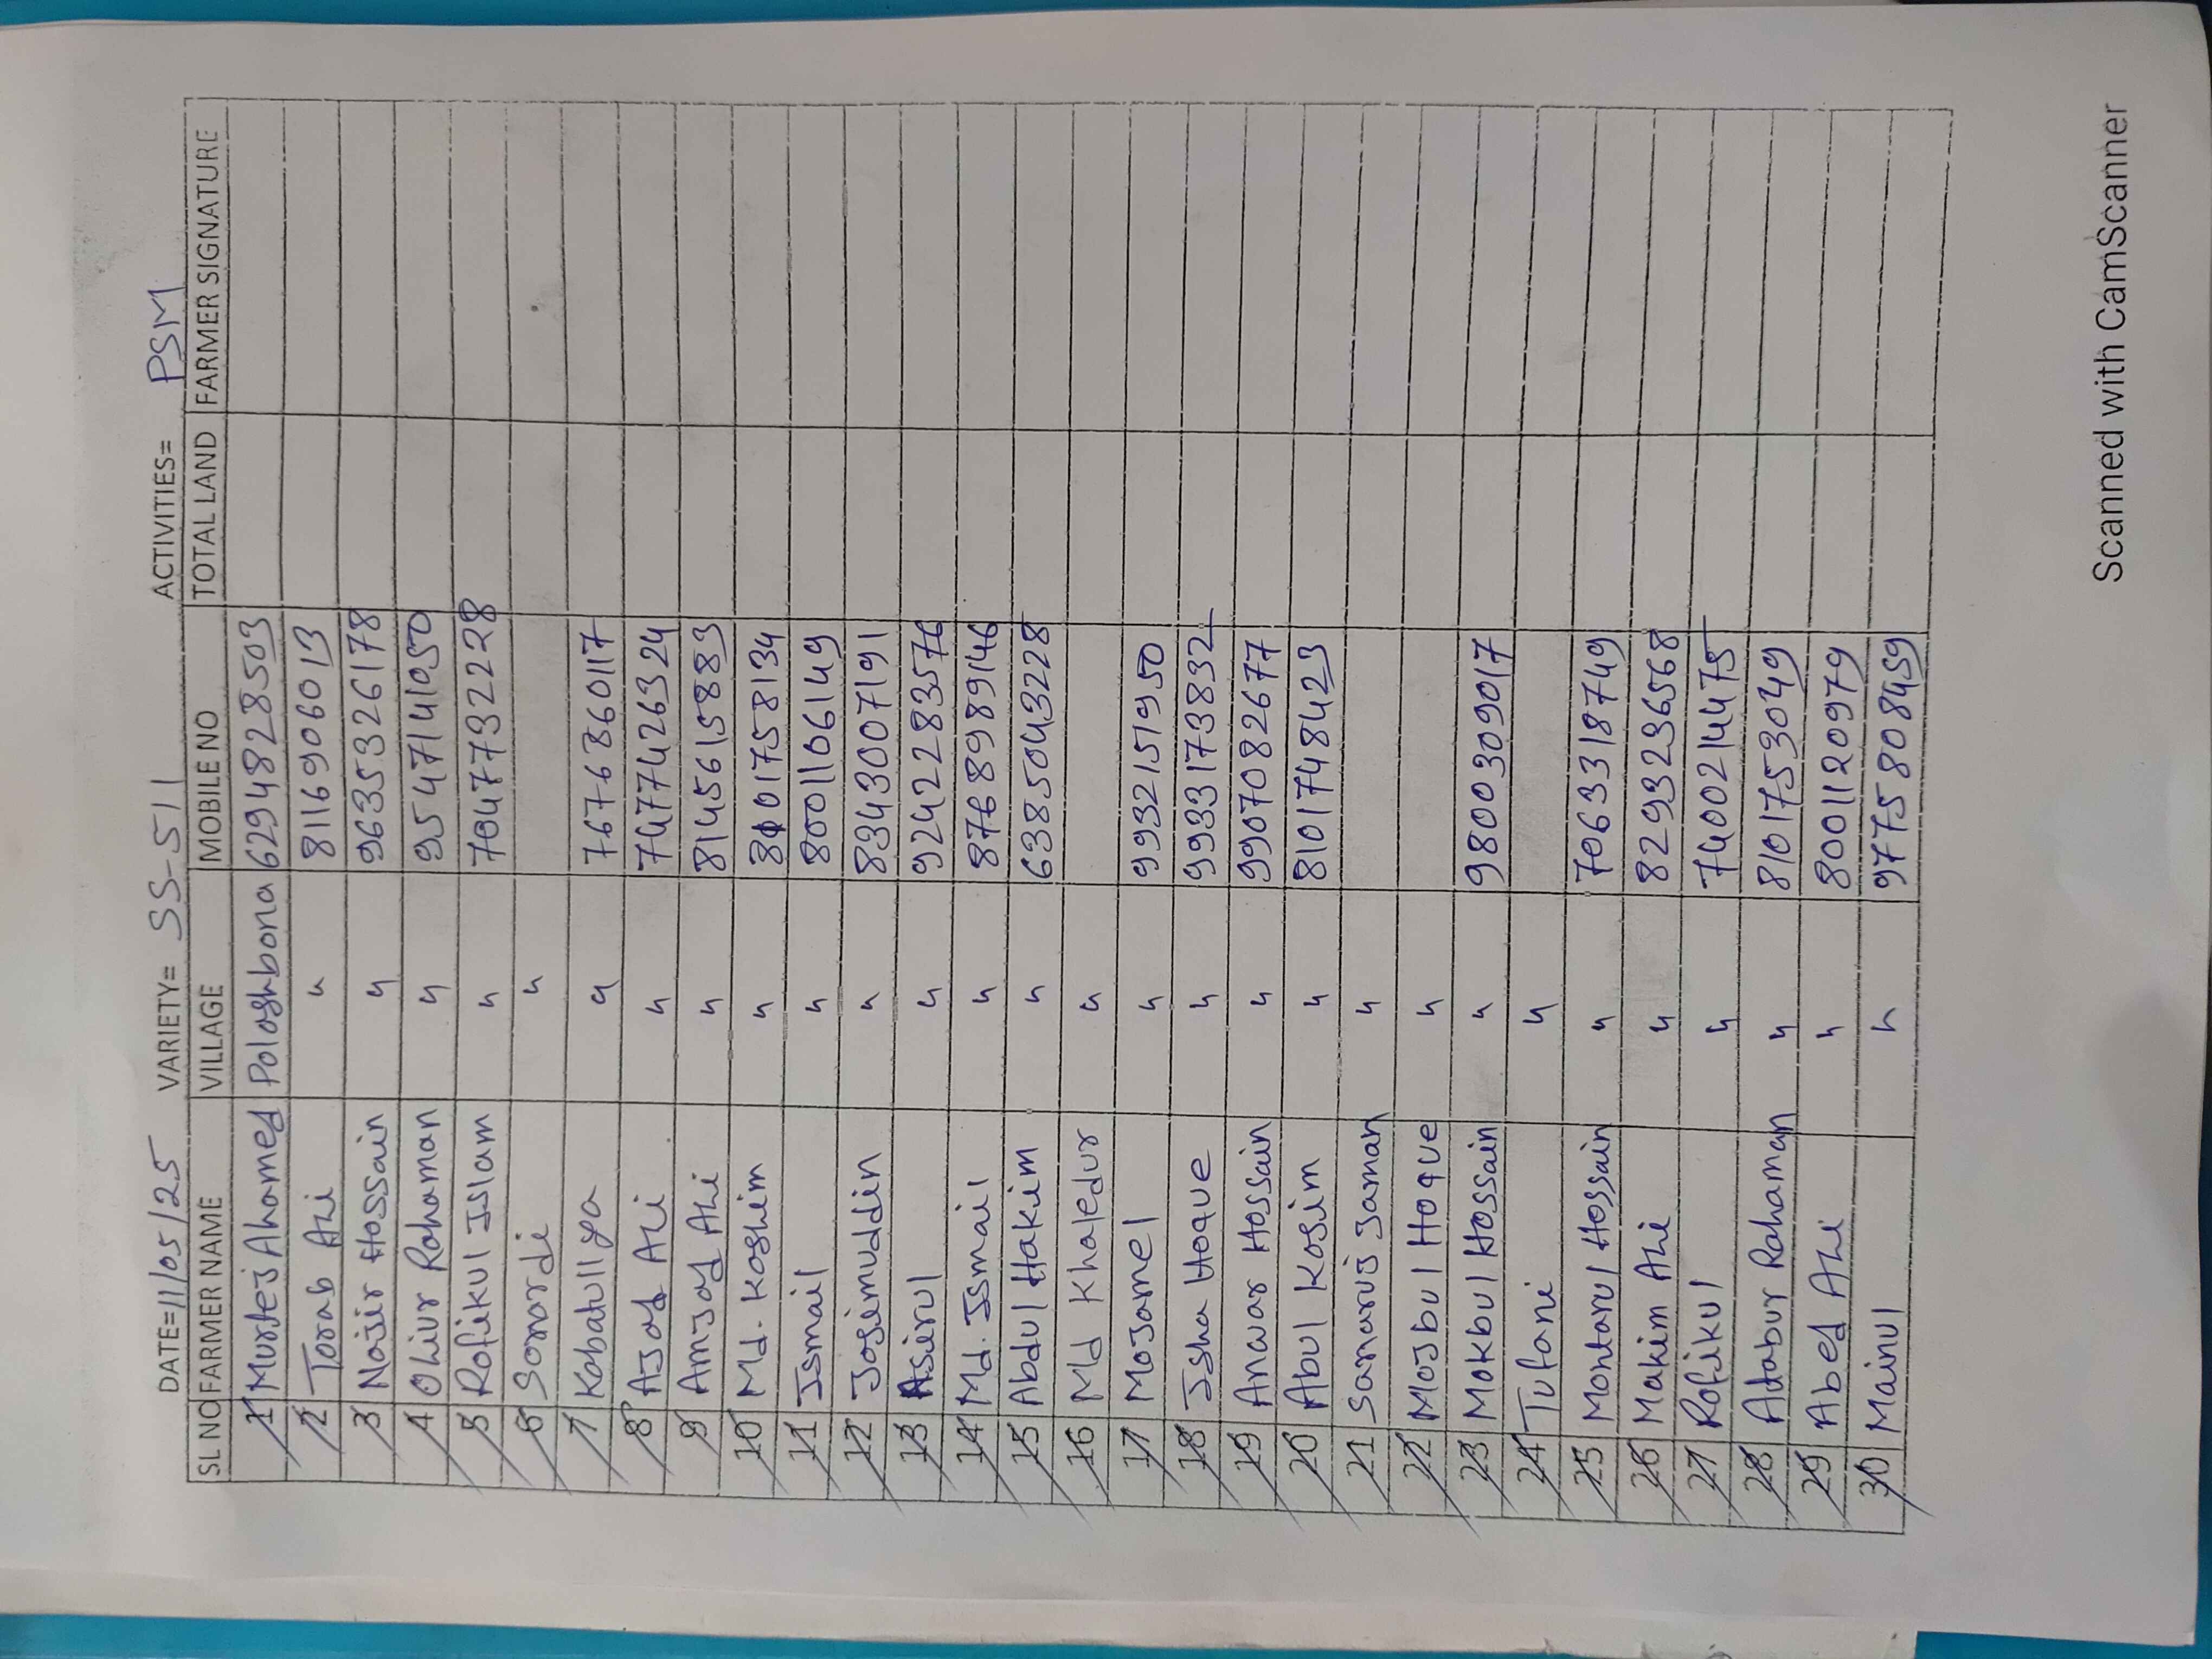 DATE=11/05/25 VARIETY= SS-511 ACTIVITIES= PSM
SL NO FARMER NAME VILLAGE MOBILE NO TOTAL LAND FARMER SIGNATURE
1 Murtej Ahamed Poloshbona 6294828503
2 Torab Ali " 8116906013
3 Najir Hossain " 9635326178
4 Olivur Rohaman " 9547141050
5 Rofikul Islam " 7047732228
6 Sonordi "
7 Kobatullya " 7676360117
8 Ajad Ali " 7477426324
9 Amjad Ali " 8145615883
10 Md. Koshim " 8101758134
11 Ismail " 8001106149
12 Josimuddin " 8343007191
13 Asirul " 9242283576
14 Md. Ismail " 8768989146
15 Abdul Hakim " 6385043228
16 Md Khaledur "
17 Mojamel " 9932151950
18 Isha Hoque " 9933173832
19 Anwar Hossain " 9907082677
20 Abul Kosim " 8101748423
21 Sanaruj Jaman "
22 Mojbul Hoque "
23 Mokbul Hossain " 9800309017
24 Tufani "
25 Montarul Hossain " 7063318749
26 Makim Ali " 8293236568
27 Rofikul " 7400214475
28 Adabur Rahaman " 8101753049
29 Abed Ali " 8001120979
30 Mainul " 9775808459
Scanned with CamScanner